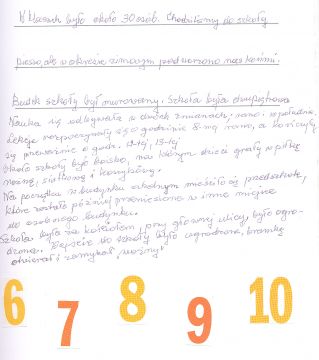 W klasach było około 30 osób. Chodziliśmy do szkoły
pieszo, ale w okresie zimowym podwożono nas końmi.
Budek szkoły był murowany. Szkoła była dwupiętrowa
Nauka się odbywała w dwóch zmianach: rano i w południe.
Lekcje rozpoczynały się o godzinie 8-mej rano, a kończyły
się przeważnie o godz. 12-tej, 13-tej
Około szkoły było boisko, na którym dzieci grały w piłkę
nożną, siatkową i koszykówkę.
Na początku w budynku szkolnym mieściło się przedszkole,
które zostało później przeniesione w inne miejsce
do osobnego budynku.
Szkoła była za kościołem, przy głównej ulicy, było ogro-
dzona. Wejście do szkoły było ogrodzone, bramkę
otwierał i zamykał woźny.
6 7 8 9 10